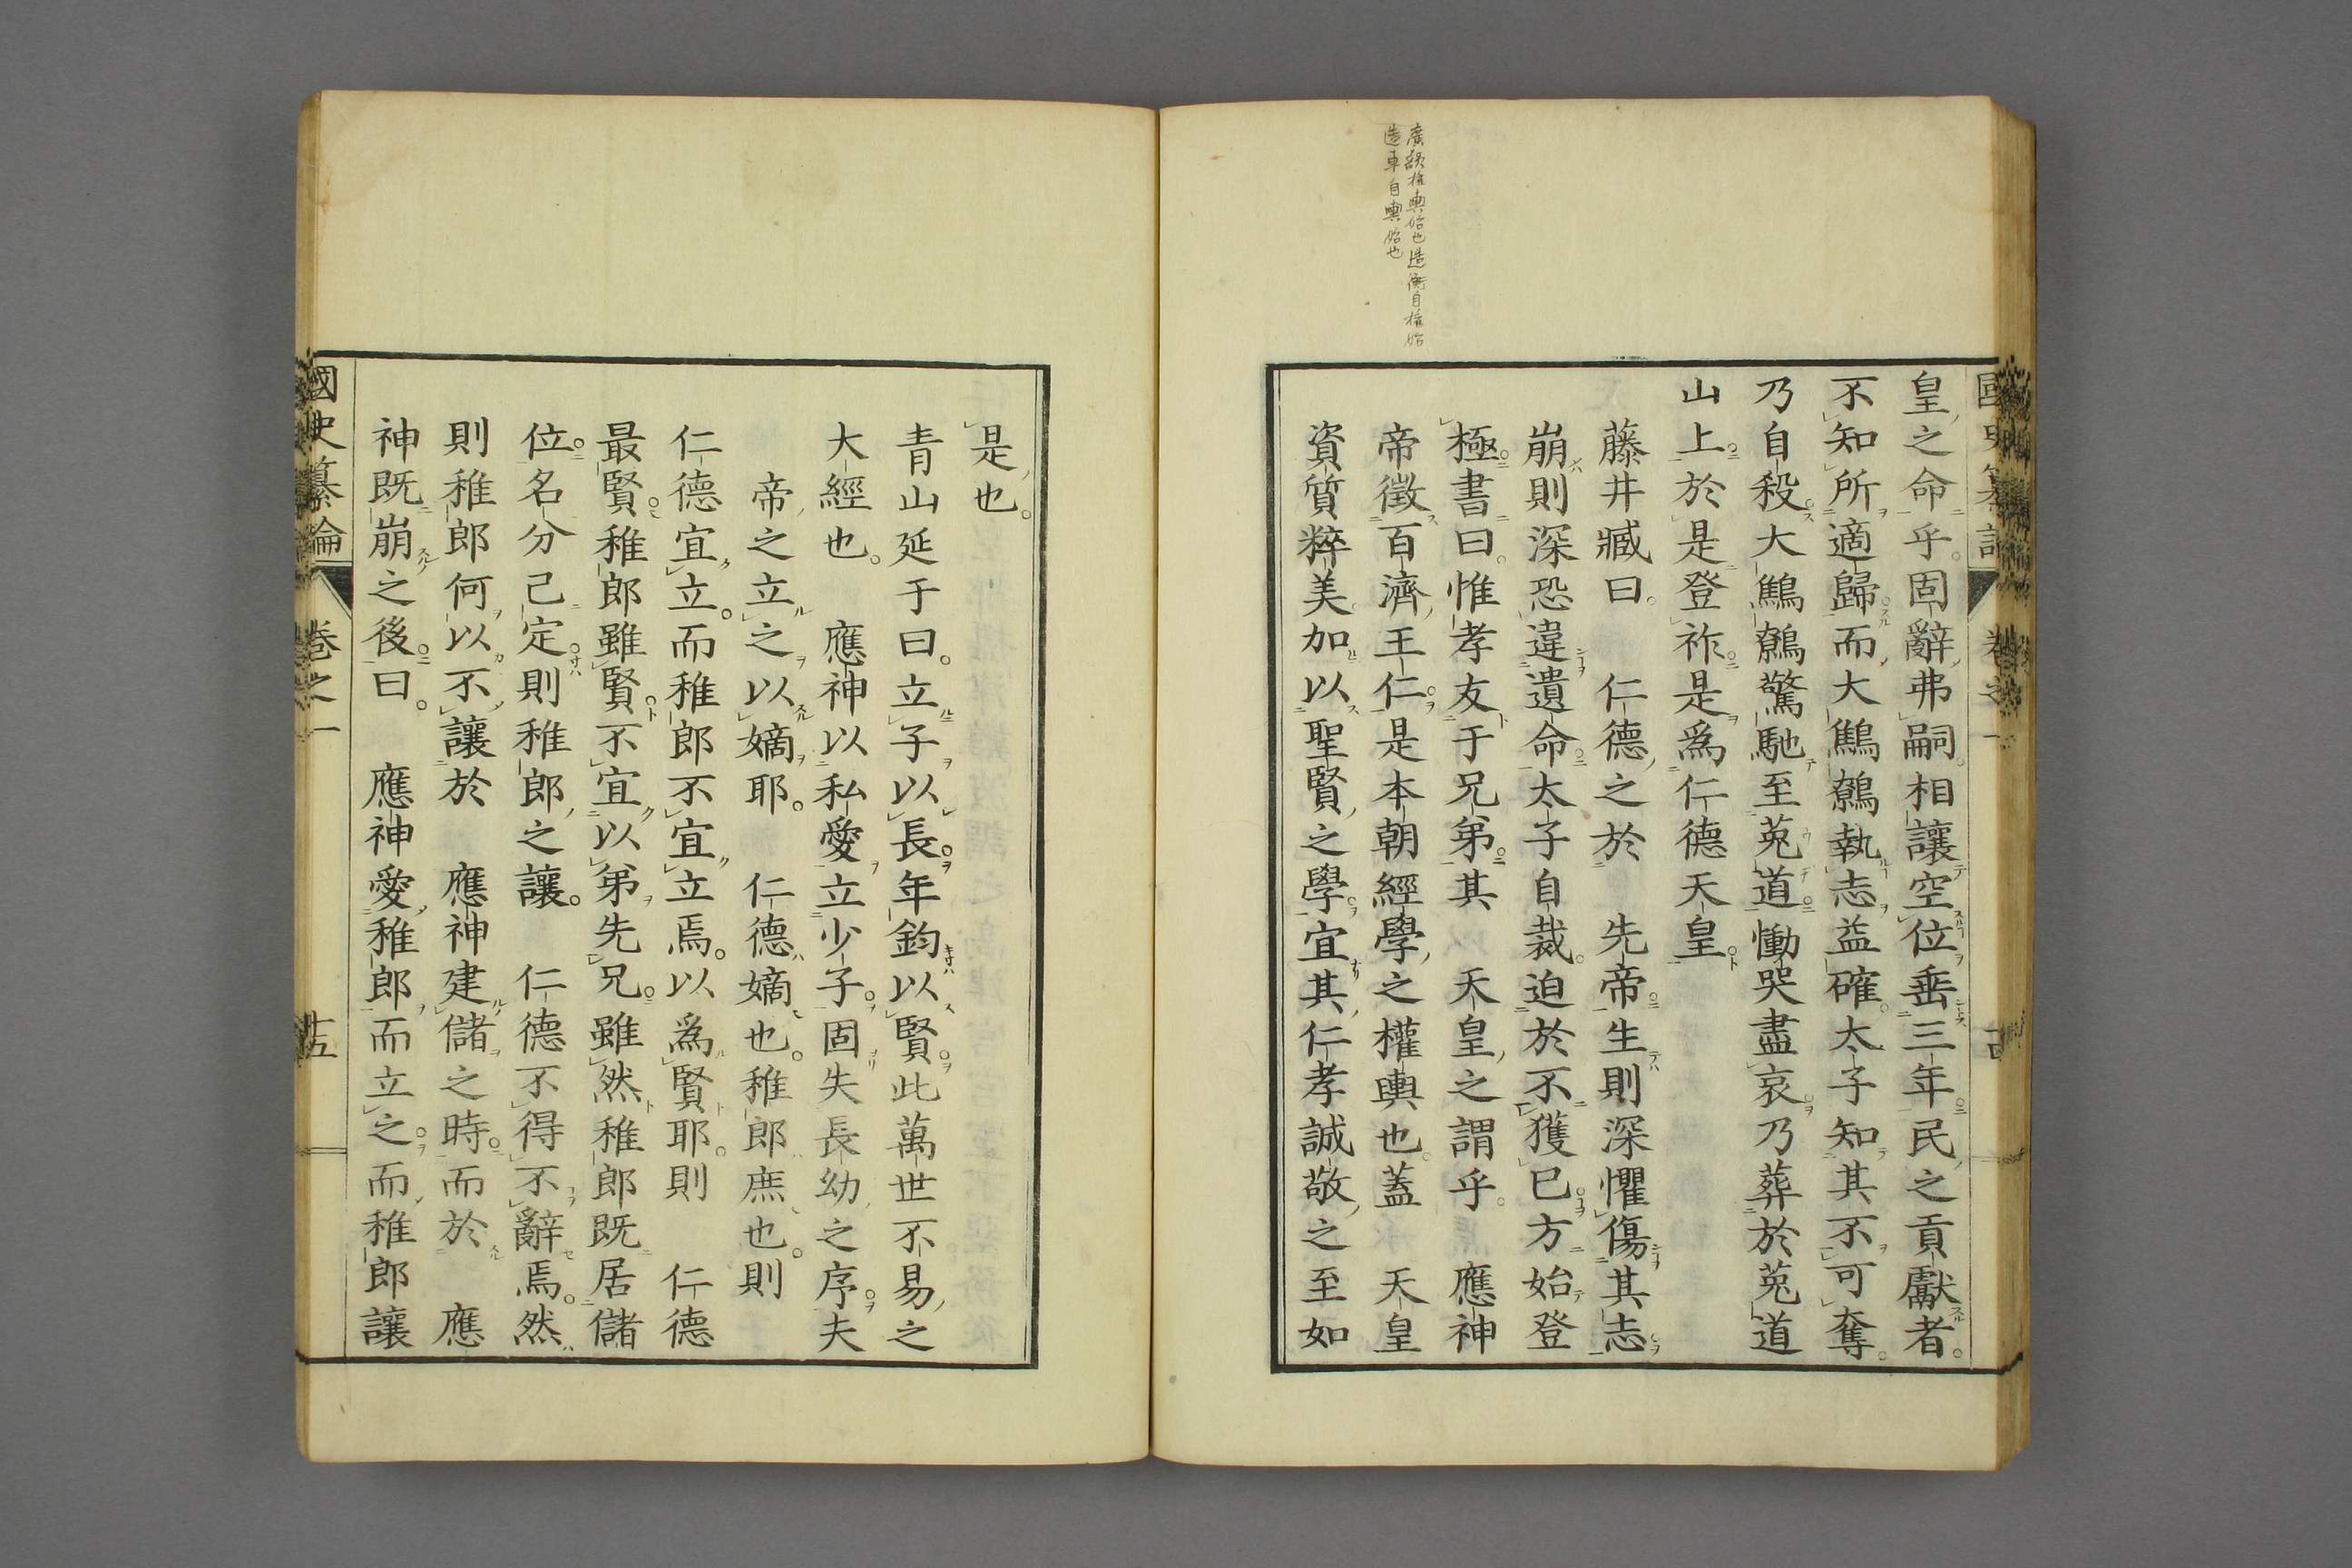 廣韻權輿始也造衡自權始
造車自輿始也
皇之命乎。固辭弗嗣。相讓空位垂三年民之貢獻者。
不知所適歸而大鷦鷯執志益確。太子知其不可奪。
乃自殺大鷦鷯驚馳至菟道慟哭盡哀乃葬於菟道
山上於是登祚是爲仁德天皇
藤井臧曰。　仁德之於　先帝生則深懼傷其志
崩則深恐違遺命太子自裁。迫於不獲已方始登
極書曰。惟孝友于兄弟其　天皇之謂乎。　應神
帝徵百濟王仁是本朝經學之權輿也。蓋　天皇
資質粹美加以聖賢之學宜其仁孝誠敬之至如
國史纂論　卷之一　十四
是也。
青山延于曰。立子以長年鈞以賢此萬世不易之
大經也。　應神以私愛立少子固失長幼之序夫
帝之立之以嫡耶。　仁德嫡也。稚郎庶也。則
仁德宜立。而稚郎不宜立焉。以爲賢耶。則　仁德
最賢稚郎雖賢不宜以弟先兄雖然稚郎既居儲
位名分已定則稚郎之讓。　仁德不得不辭焉。然
則稚郎何以不讓於　應神建儲之時而於　應
神既崩之後曰。　應神愛稚郎而立之而稚郎讓
國史纂論　卷之一　十五